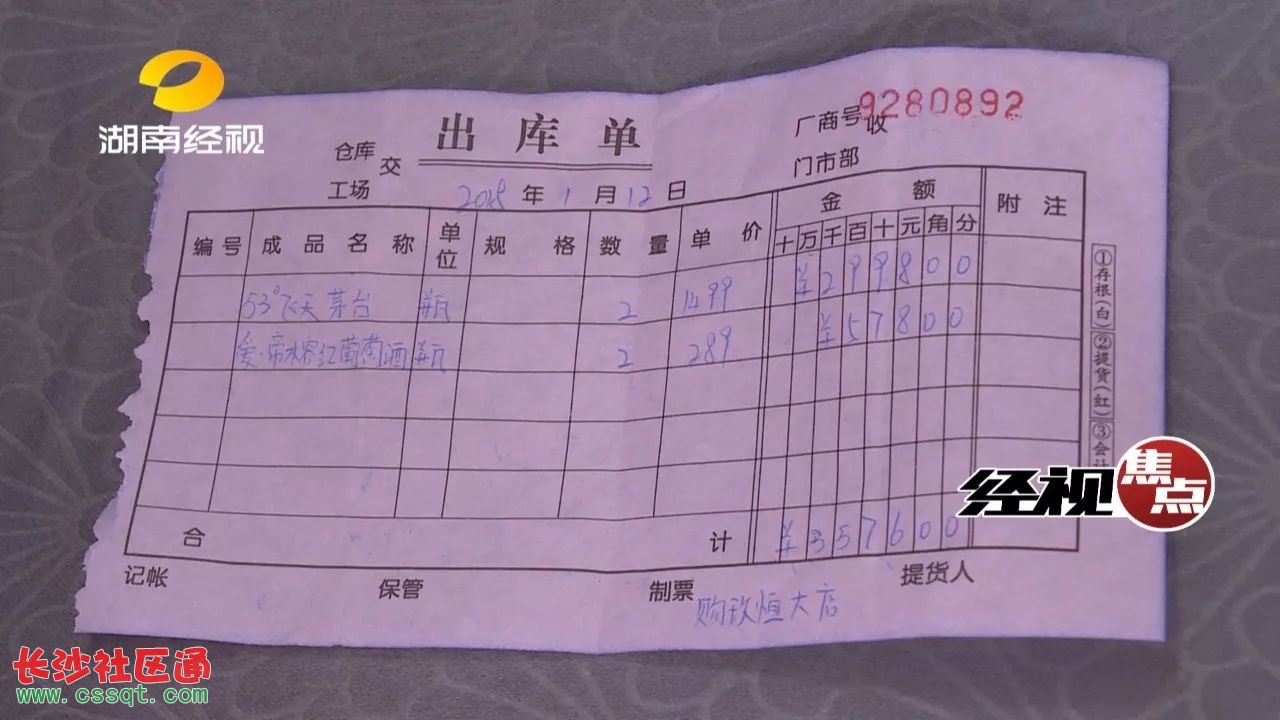 湖南经视
9280892
出库单
厂商号收
仓库 交
门市部
工场
2018年1月12日
编号 成品名称 单位 规格 数量 单价 金额 附注
十万千百十元角分
53°飞天茅台 瓶 2 1499 ¥299800
爱·帝水容红葡萄酒 瓶 2 289 ¥57800
合计 ¥357600
记帐 保管 制票 提货人
恒大店
①存根(白)②提货(红)③会计
经视焦点
长沙社区通
www.cssqt.com